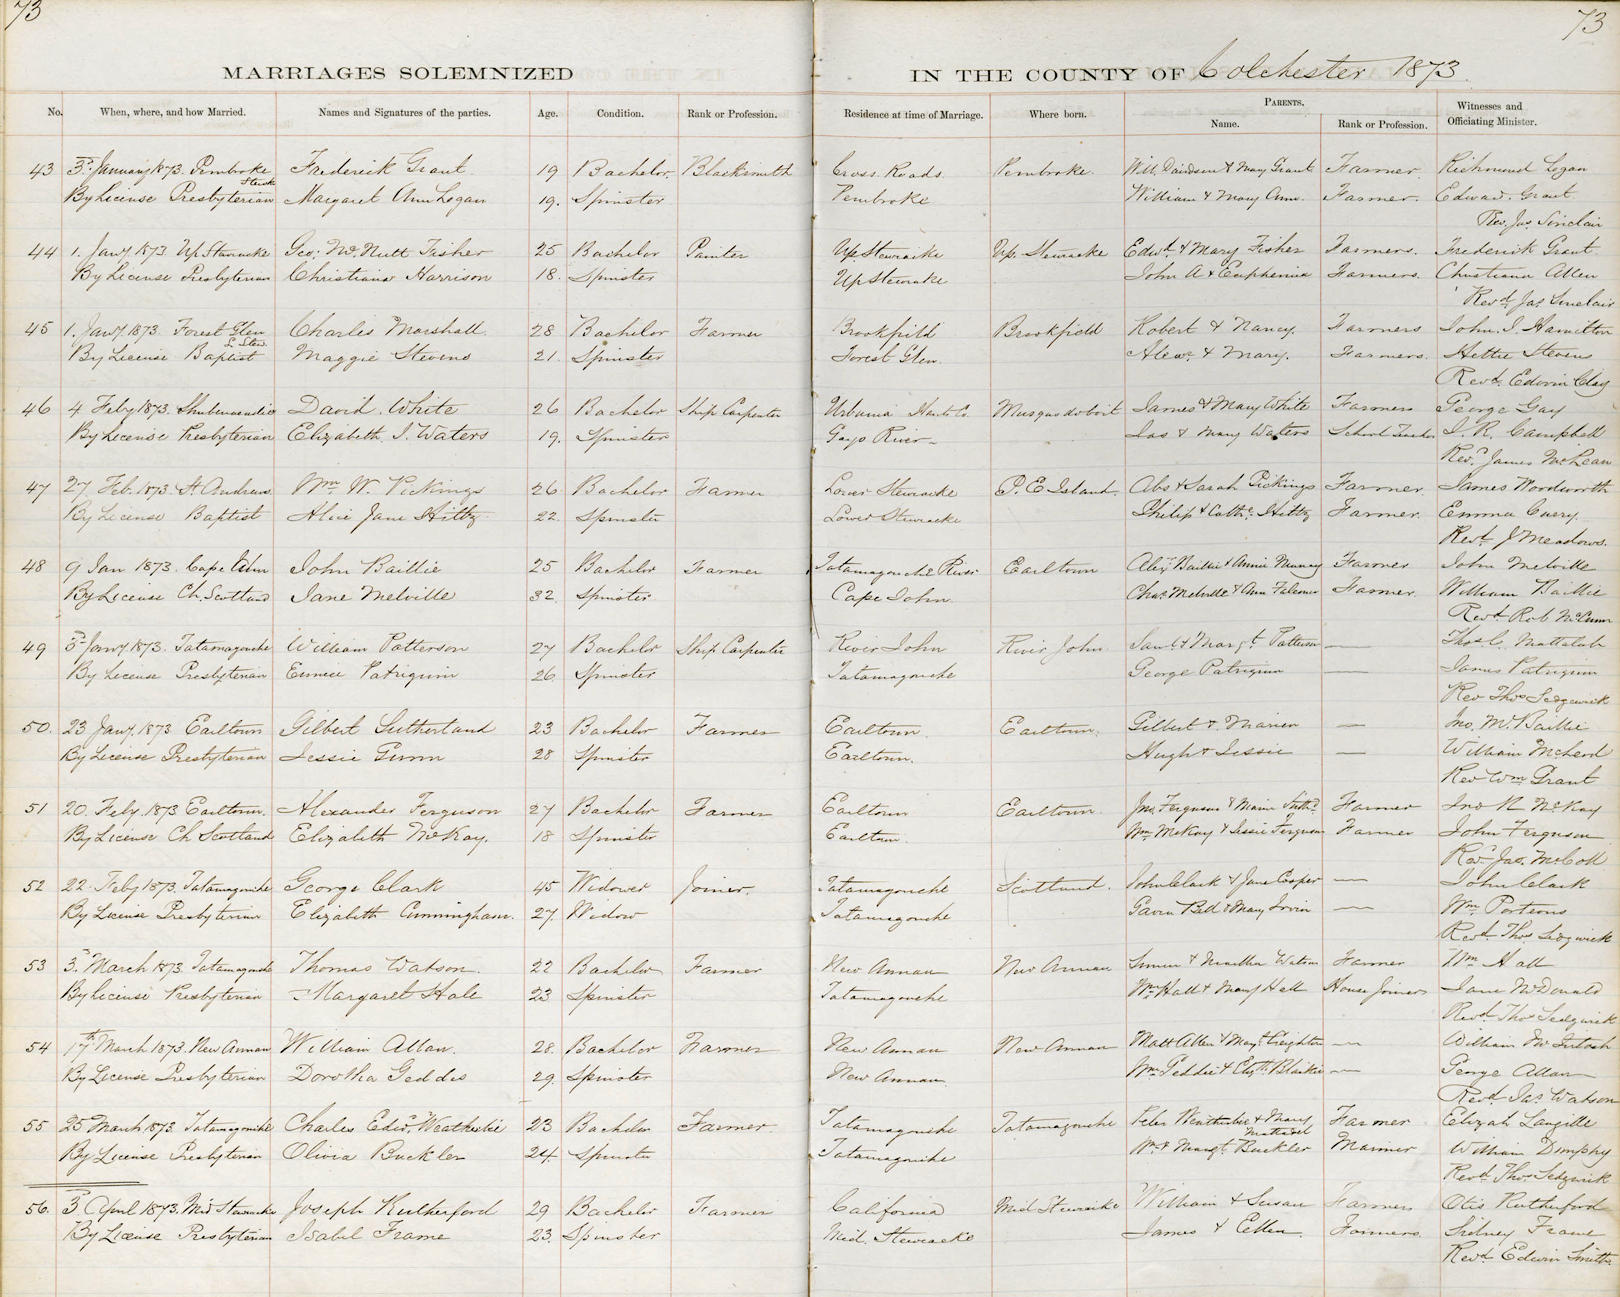 73
73
MARRIAGES SOLEMNIZED
IN THE COUNTY OF Colchester 1873.
No. When, where, and how Married. Names and Signatures of the parties. Age. Condition. Rank or Profession. Residence at time of Marriage. Where born. PARENTS. Name. Rank or Profession. Witnesses and Officiating Minister.
43 3rd January 1873. Pembroke Frederick Grant 19 Bachelor Blacksmith Cross Roads Pembroke. Will. Davidson & Mary Grant Farmer Richmond Logan
Stewk
By License Presbyterian Margaret Ann Logan 19. Spinster Pembroke William & Mary Ann. Farmer. Edward Grant
Rev. Jas Sinclair
44 1. Jany 1873 Up Stewiacke Geo: McNutt Fisher 25 Bachelor Painter Up Stewiacke Up. Stewiacke Edwd & Mary Fisher Farmers. Frederick Grant
By License Presbyterian Christiana Harrison 18. Spinster Up Stewiacke John A & Euphemia Farmers. Christiana Allen
Revd Jas Sinclair
45 1. Jany 1873. Forest Glen Charles Marshall 28 Bachelor Farmer Brookfield Brookfield Robert & Nancy Farmers John. I. Hamilton
L Stew.
By License Baptist Maggie Stevens 21. Spinster Forest Glen. Alexr & Mary. Farmers. Hettie Stevens
Revd. Edwin Clay
46 4 Feby 1873. Shubenacadie David White 26 Bachelor Ship Carpenter Urbania Hants Co. Musquodoboit James & Mary White Farmers George Gay
By License Presbyterian Elizabeth J. Waters 19. Spinster Gays River Jas & Mary Waters School Teacher J. R. Campbell
Revd James McLean
47 27 Feb. 1873. St. Andrews Wm W. Pickings 26. Bachelor Farmer Lower Stewiacke P. E. Island. Abs & Sarah Pickings Farmer James Wordworth
By License Baptist Alice Jane Hiltz 22. Spinster Lower Stewiacke Philip & Cathe Hiltz Farmer. Emma Creey.
Revd. J Meadows.
48 9 Jan 1873. Cape John John Baillie 25 Bachelor Farmer Tatamagouche River Earltown Alexr Baillie & Annie Murray Farmer John Melville
By License Ch. Scotland Jane Melville 32. Spinster Cape John. Chas Melville & Ann Falconer Farmer. William Baillie
Revd Rob McCunn
49 3rd Jany 1873. Tatamagouche William Patterson 27 Bachelor Ship Carpenter River John River John Saml & Margt Patterson — Thos C. Mattatah
By License Presbyterian Eunice Patriquin 26 Spinster Tatamagouche George Patriquin — James Patriquin
Rev Thos Sedgewick
50. 23 Jany 1873 Earltown Gilbert Sutherland 23 Bachelor Farmer Earltown. Earltown. Gilbert & Marion — Jno. M. Baillie
By License Presbyterian Jessie Gunn 28 Spinster Earltown. Hugh & Jessie — William McLeod
Rev Wm Grant
51 20. Feby 1873 Earltown. Alexander Ferguson 27 Bachelor Farmer Earltown Earltown Jno. Ferguson & Marion Suthd Farmer Jno R McKay
By License Ch Scotland Elizabeth McKay. 18 Spinster Earltown. Wm McKay & Jessie Ferguson Farmer John Ferguson
Revd Jas. McColl
52 22. Feby 1873. Tatamagouche George Clark 45 Widower Joiner. Tatamagouche Scotland. John Clark & Jane Cooper — John Clark
By License Presbyterian Elizabeth Cunningham. 27. Widow Tatamagouche Gavin Bell & Mary Irvin — Wm Porteous
Revd. Thos Sedgwick
53 3rd March 1873. Tatamagouche Thomas Watson 22 Bachelor Farmer New Annan New Annan & Watson Farmer Wm Hall
By License Presbyterian Margaret Hale 23 Spinster Tatamagouche Wm Hall & Mary Hall House Joiner Jane McDonald
Revd Thos Sedgwick
54 17th March 1873. New Annan William Allan. 28. Bachelor Farmer New Annan New Annan Matt Allen & Mary Creighton — William McIntosh
By License Presbyterian Dorotha Geddes 29. Spinster New Annan. Wm Geddie & Elizth Blaikie — George Allan
Revd. Jas Watson
55 25 March 1873. Tatamagouche Charles Edwd. Weatherbie 23 Bachelor Farmer Tatamagouche Tatamagouche Peter Weatherbie & Mary Farmer Elizah Langille
By License Presbyterian Olivia Buckler 24. Spinster Tatamagouche Wm & Margt Buckler Mariner William Dumphy
Revd Thos Sedgwick
56. 3rd April 1873. Mid Stewiacke Joseph Rutherford 29 Bachelor Farmer California Mid Stewiacke William & Susan Farmers Otis Rutherford
By License Presbyterian Isabel Frame 23. Spinster Mid. Stewiacke James & Ellen Farmers. Sidney Frame
Revd Edwin Smith.